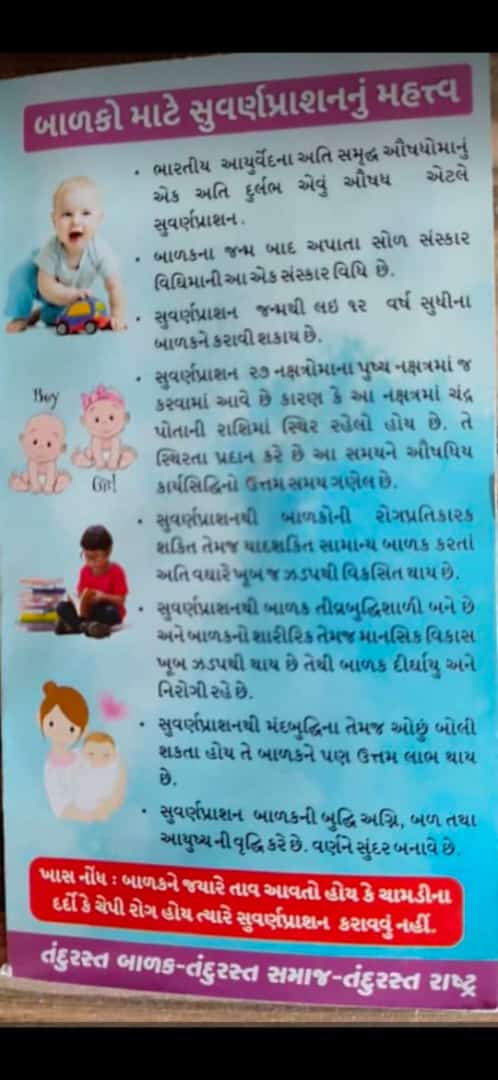 બાળકો માટે સુવર્ણપ્રાશનનું મહત્ત્વ
• ભારતીય આયુર્વેદના અતિ સમૃદ્ધ ઔષધોમાનું
એક અતિ દુર્લભ એવું ઔષધ એટલે
સુવર્ણપ્રાશન.
• બાળકના જન્મ બાદ અપાતા સોળ સંસ્કાર
વિધિમાની આ એક સંસ્કાર વિધિ છે.
• સુવર્ણપ્રાશન જન્મથી લઇ ૧૨ વર્ષ સુધીના
બાળકને કરાવી શકાય છે.
• સુવર્ણપ્રાશન ૨૭ નક્ષત્રોમાના પુષ્ય નક્ષત્રમાં જ
કરવામાં આવે છે કારણ કે આ નક્ષત્રમાં ચંદ્ર
પોતાની રાશિમાં સ્થિર રહેલો હોય છે. તે
સ્થિરતા પ્રદાન કરે છે આ સમયને ઔષધિય
કાર્યસિદ્ધિનો ઉત્તમ સમય ગણેલ છે.
• સુવર્ણપ્રાશનથી બાળકોની રોગપ્રતિકારક
શકિત તેમજ યાદશકિત સામાન્ય બાળક કરતાં
અતિ વધારે ખૂબ જ ઝડપથી વિકસિત થાય છે.
• સુવર્ણપ્રાશનથી બાળક તીવ્રબુદ્ધિશાળી બને છે
અને બાળકનો શારીરિક તેમજ માનસિક વિકાસ
ખૂબ ઝડપથી થાય છે તેથી બાળક દીર્ઘાયુ અને
નિરોગી રહે છે.
• સુવર્ણપ્રાશનથી મંદબુદ્ધિના તેમજ ઓછું બોલી
શકતા હોય તે બાળકને પણ ઉત્તમ લાભ થાય
છે.
• સુવર્ણપ્રાશન બાળકની બુદ્ધિ અગ્નિ, બળ તથા
આયુષ્યની વૃદ્ધિ કરે છે. વર્ણને સુંદર બનાવે છે.
Boy
Girl
ખાસ નોંધ : બાળકને જયારે તાવ આવતો હોય કે ચામડીના
દર્દો કે ચેપી રોગ હોય ત્યારે સુવર્ણપ્રાશન કરાવવું નહીં.
તંદુરસ્ત બાળક-તંદુરસ્ત સમાજ-તંદુરસ્ત રાષ્ટ્ર